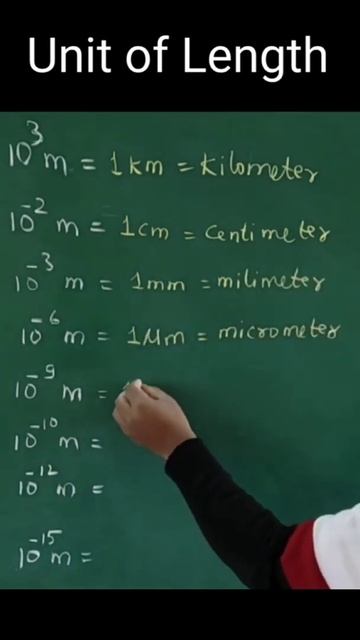 Unit of Length
10³ m = 1 km = kilometer
10⁻² m = 1cm = centimeter
10⁻³ m = 1mm = milimeter
10⁻⁶ m = 1μm = micrometer
10⁻⁹ m =
10⁻¹⁰ m =
10⁻¹² m =
10⁻¹⁵ m =